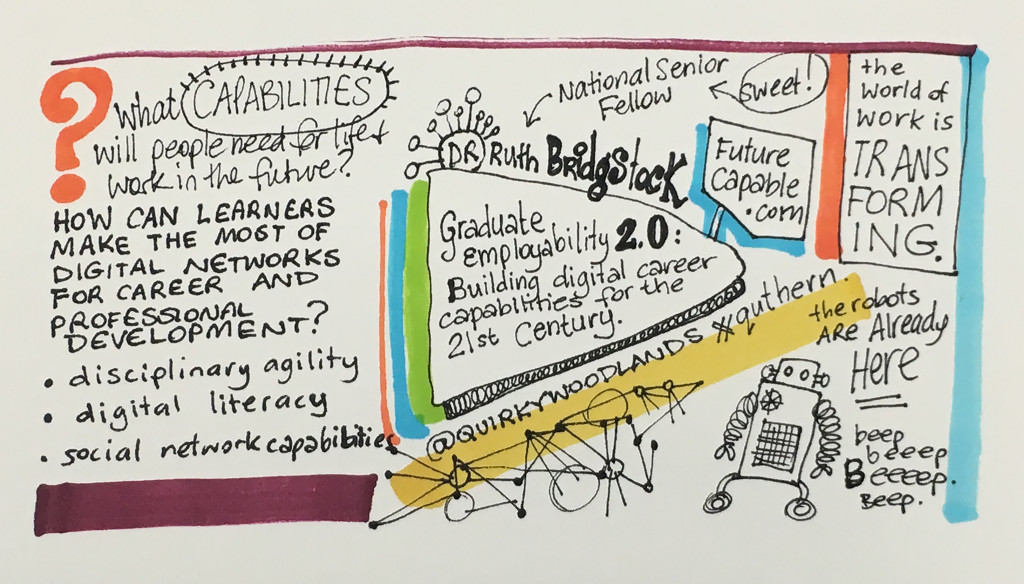 ?
What CAPABILITIES
will people need for life +
work in the future?
HOW CAN LEARNERS
MAKE THE MOST OF
DIGITAL NETWORKS
FOR CAREER AND
PROFESSIONAL
DEVELOPMENT?
• disciplinary agility
• digital literacy
• social network capabilities
National Senior
Fellow
Sweet!
DR RUTH BRidgStocK
Graduate
employability 2.0:
Building digital career
capabilities for the
21st Century.
Future
Capable
.com
@QUIRKYWOODLANDS #quthern.
the
world of
work is
TRANS
FORM
ING.
the robots
ARE Already
HERE
beep
beeep
Beeeep.
Beep.